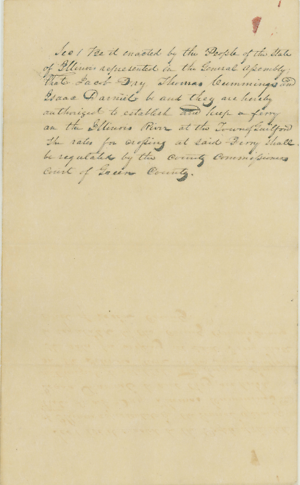 Sec 1 Be it enacted by the People of the State
of Illinois represented in the General Assembly
that Jacob Thomas Cummings and
Isaac be and they are hereby
authorised to establish and keep a ferry
on the Illinois River at the Town of
The rates for crossing at said Ferry shall
be regulated by the County Commissioners
Court of County.